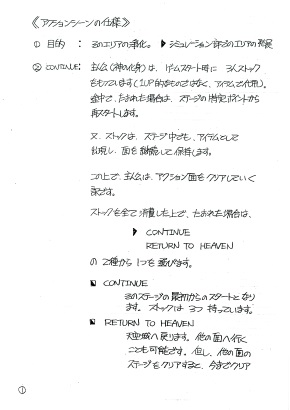 《アクションシーンの仕様》
① 目的 : そのエリアの浄化。▶シミュレーション部でのエリアの発展
② CONTINUE: 主人公(神の化身)は、ゲームスタート時に 3人ストック
をもっています(1UP的なものではなく、アイテムで代用)。
途中で、たおれた場合は、ステージの特定ポイントから
再スタートします。
又、ストックは、ステージ中でも、アイテムとして
出現し、面を継続して保持します。
この上で、主人公は、アクション面をクリアしていく
訳です。
ストックを全て消費した上で、たおれた場合は、
▶ CONTINUE
RETURN TO HEAVEN
の 2種から 1つを選びます。
CONTINUE
そのステージの最初からのスタートとなり
ます。ストックは 3つ 持っています。
RETURN TO HEAVEN
天空城へ戻ります。他の面へ行く
ことも可能です。但し、他の面の
ステージをクリアすると、今までクリア
①